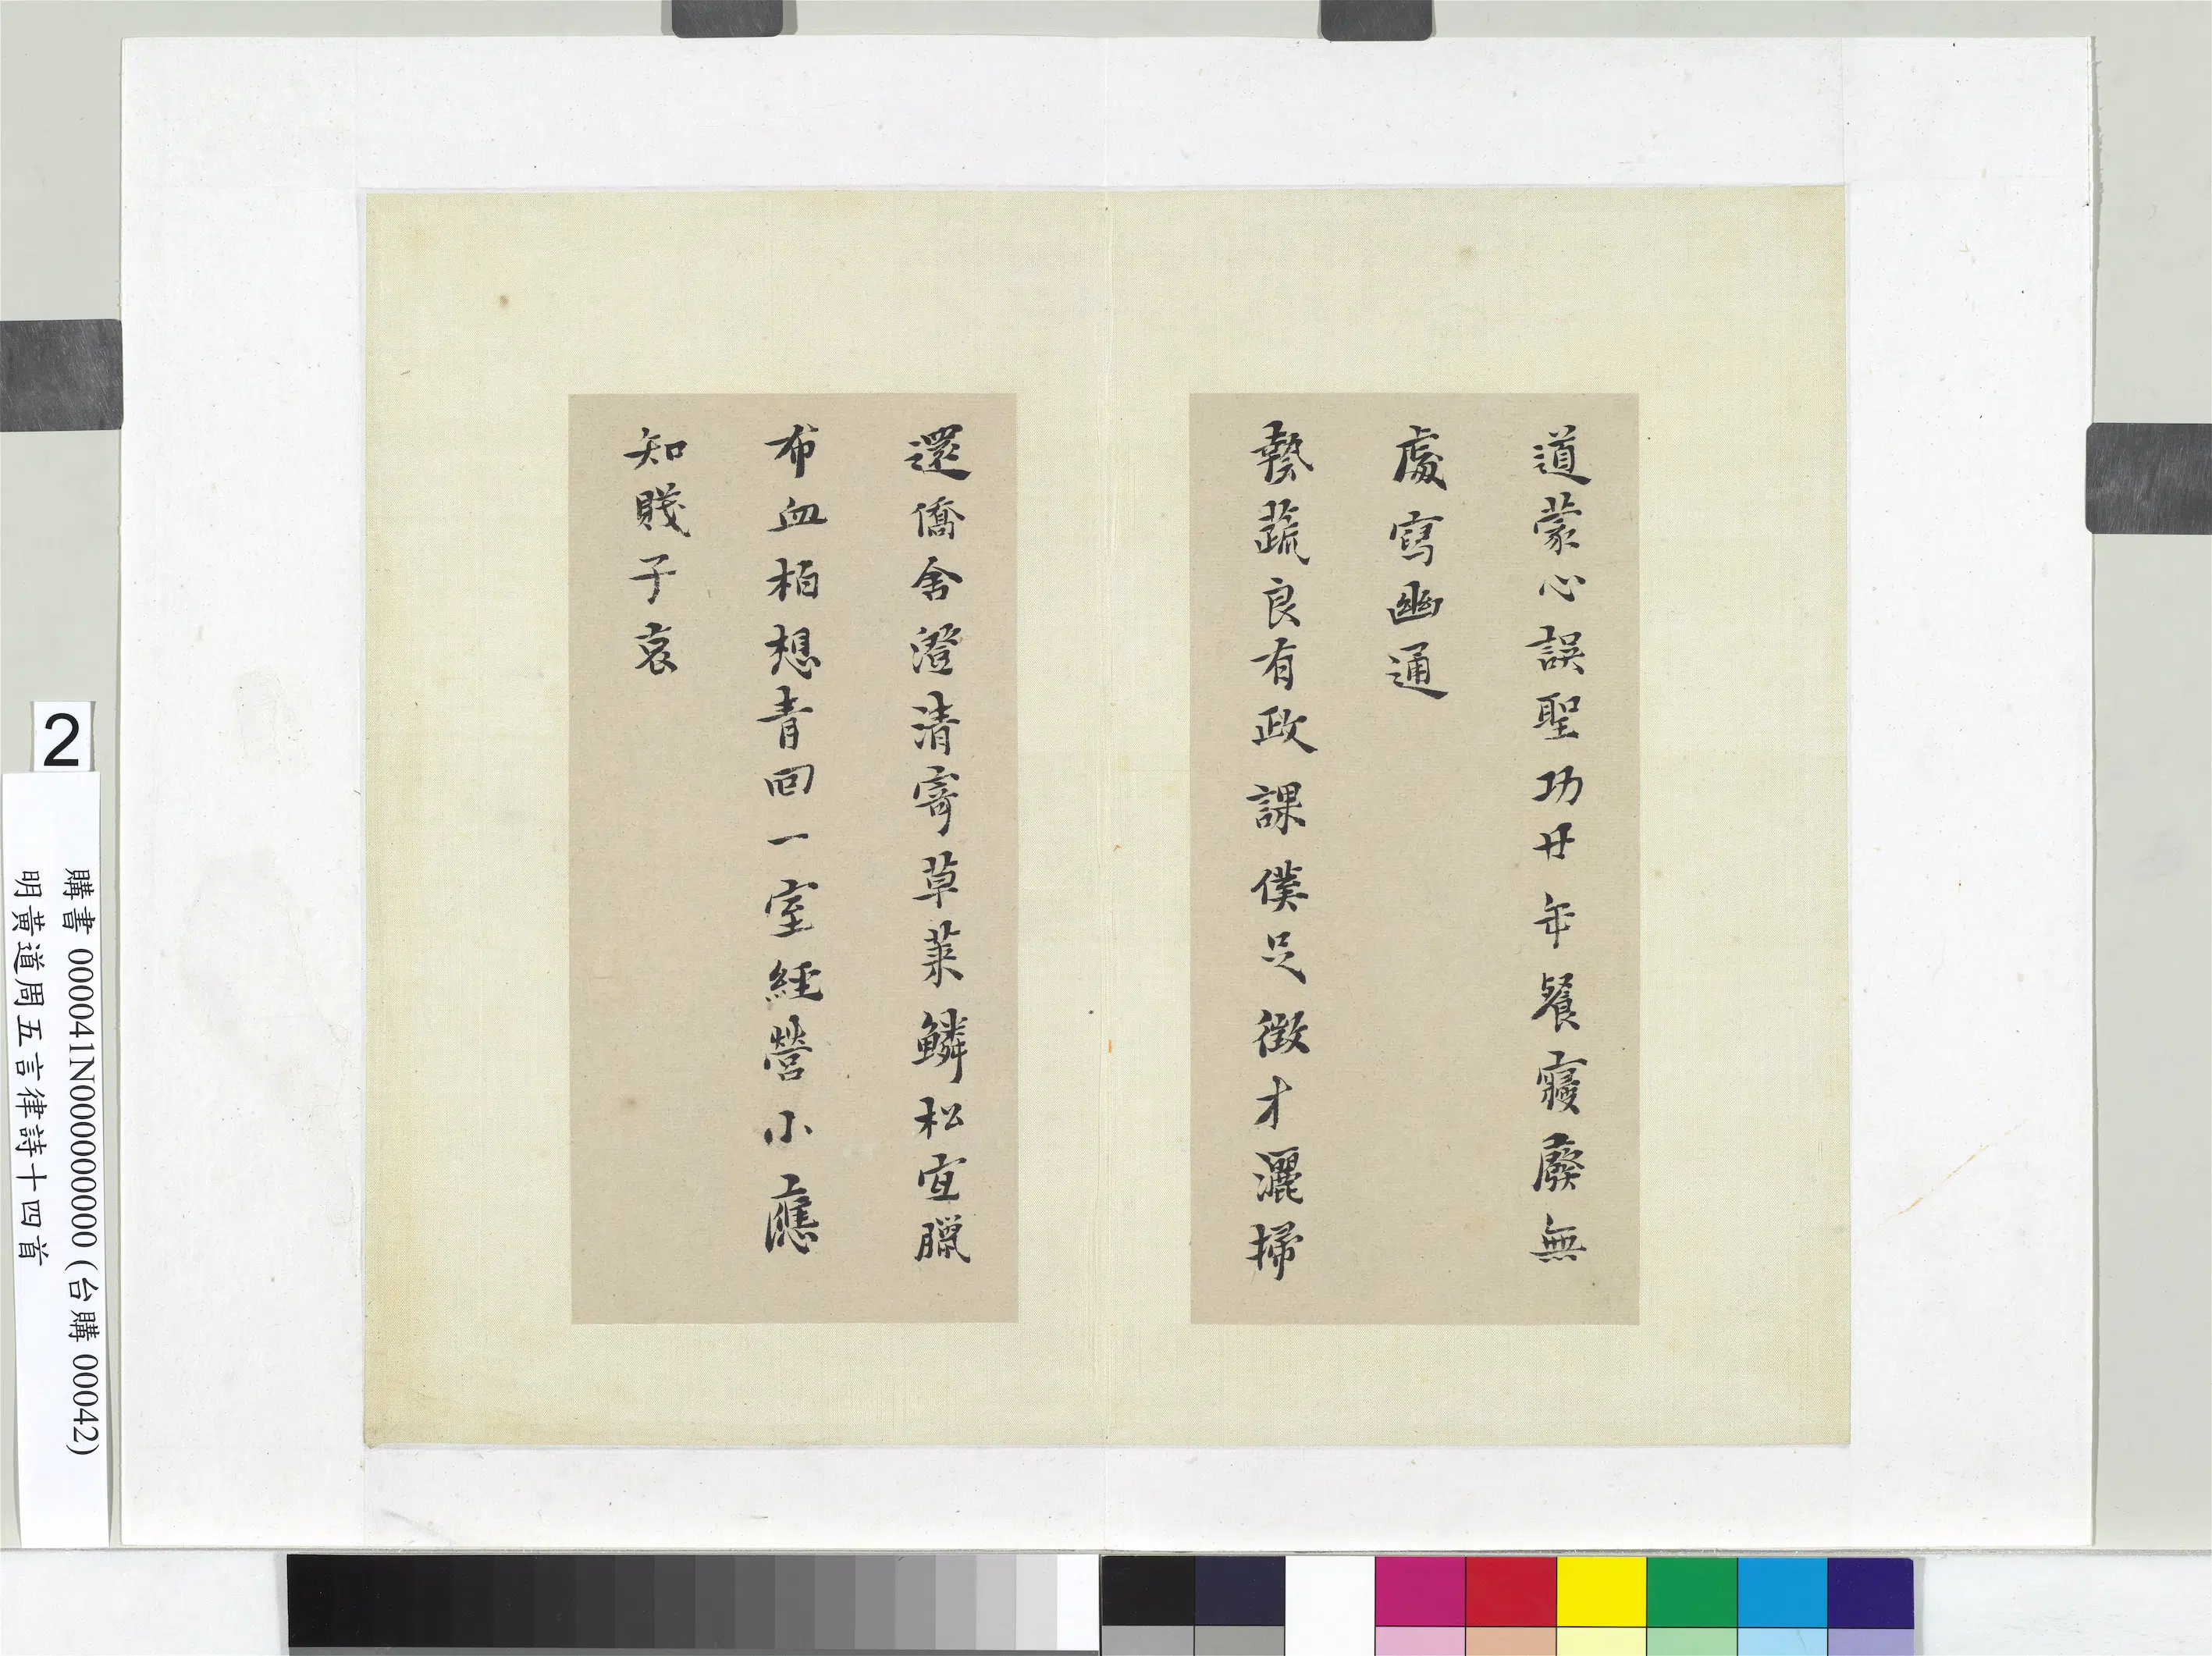 道蒙心誤聖功廿年餐寢廢無
處寫幽通
蓺蔬良有政課僕足徵才灑掃
還僑舍澄清寄草萊鱗松宜臘
布血柏想青回一室經營小應
知賤子哀
2
購書 000041N000000000 (台購 00042)
明黃道周五言律詩十四首